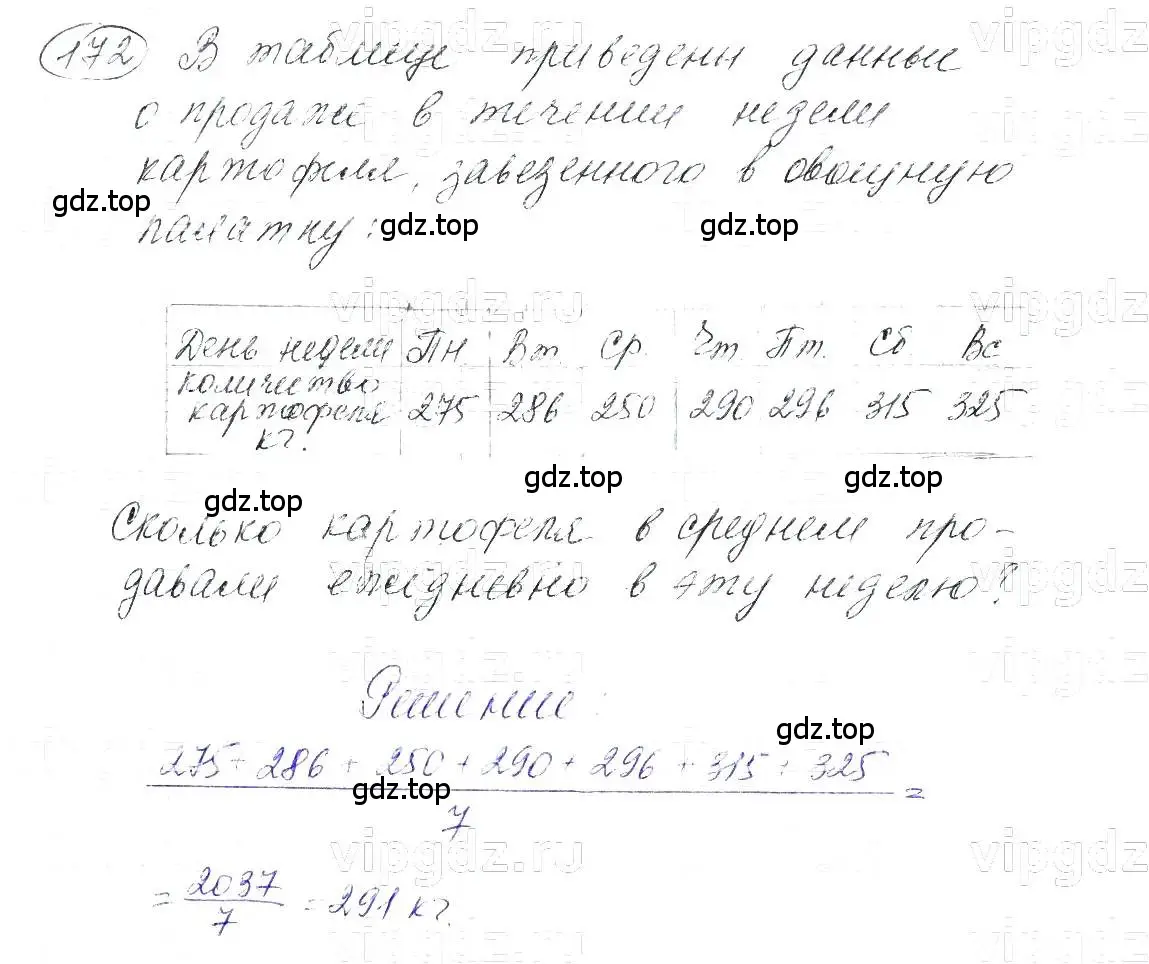 172 В таблице приведены данные
о продаже в течении недели
картофеля, завезенного в овощную
палатку:
День недели Пн Вт. Ср. Чт. Пт. Сб Вс
количество картофеля кг. 275 286 250 290 296 315 325
Сколько картофеля в среднем про-
давали ежедневно в эту неделю?
Решение:
275 + 286 + 250 + 290 + 296 + 315 + 325 =
7
= 2037/7 = 291 кг.
gdz.top
gdz.top
gdz.top
gdz.top
gdz.top
gdz.top
gdz.top
gdz.top
vipgdz.ru
vipgdz
vipgdz.ru
vipgdz
vipgdz.ru
vipgdz
vipgdz.ru
vipgdz
vipgdz.ru
vipgdz
vipgdz.ru
vipgdz
vipgdz.ru
vipgdz